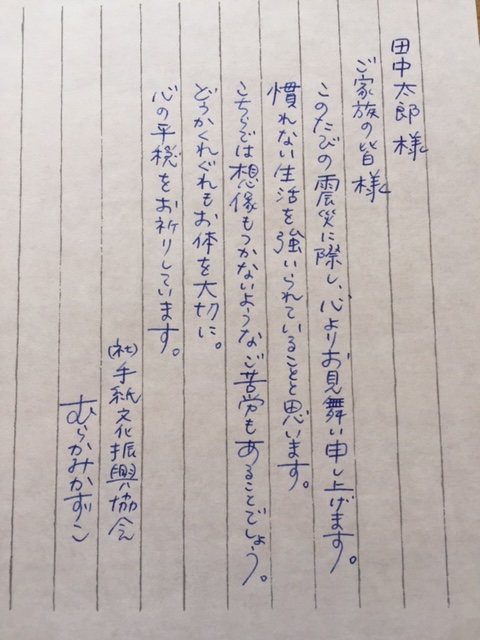 田中太郎 様
ご家族の皆 様
このたびの震災に際し、心よりお見舞い申し上げます。
慣れない生活を強いられていることと思います。
こちらでは想像もつかないようなご苦労もあることでしょう。
どうかくれぐれもお体を大切に。
心の平穏をお祈りしています。
(社)手紙文化振興協会
むらかみかずこ